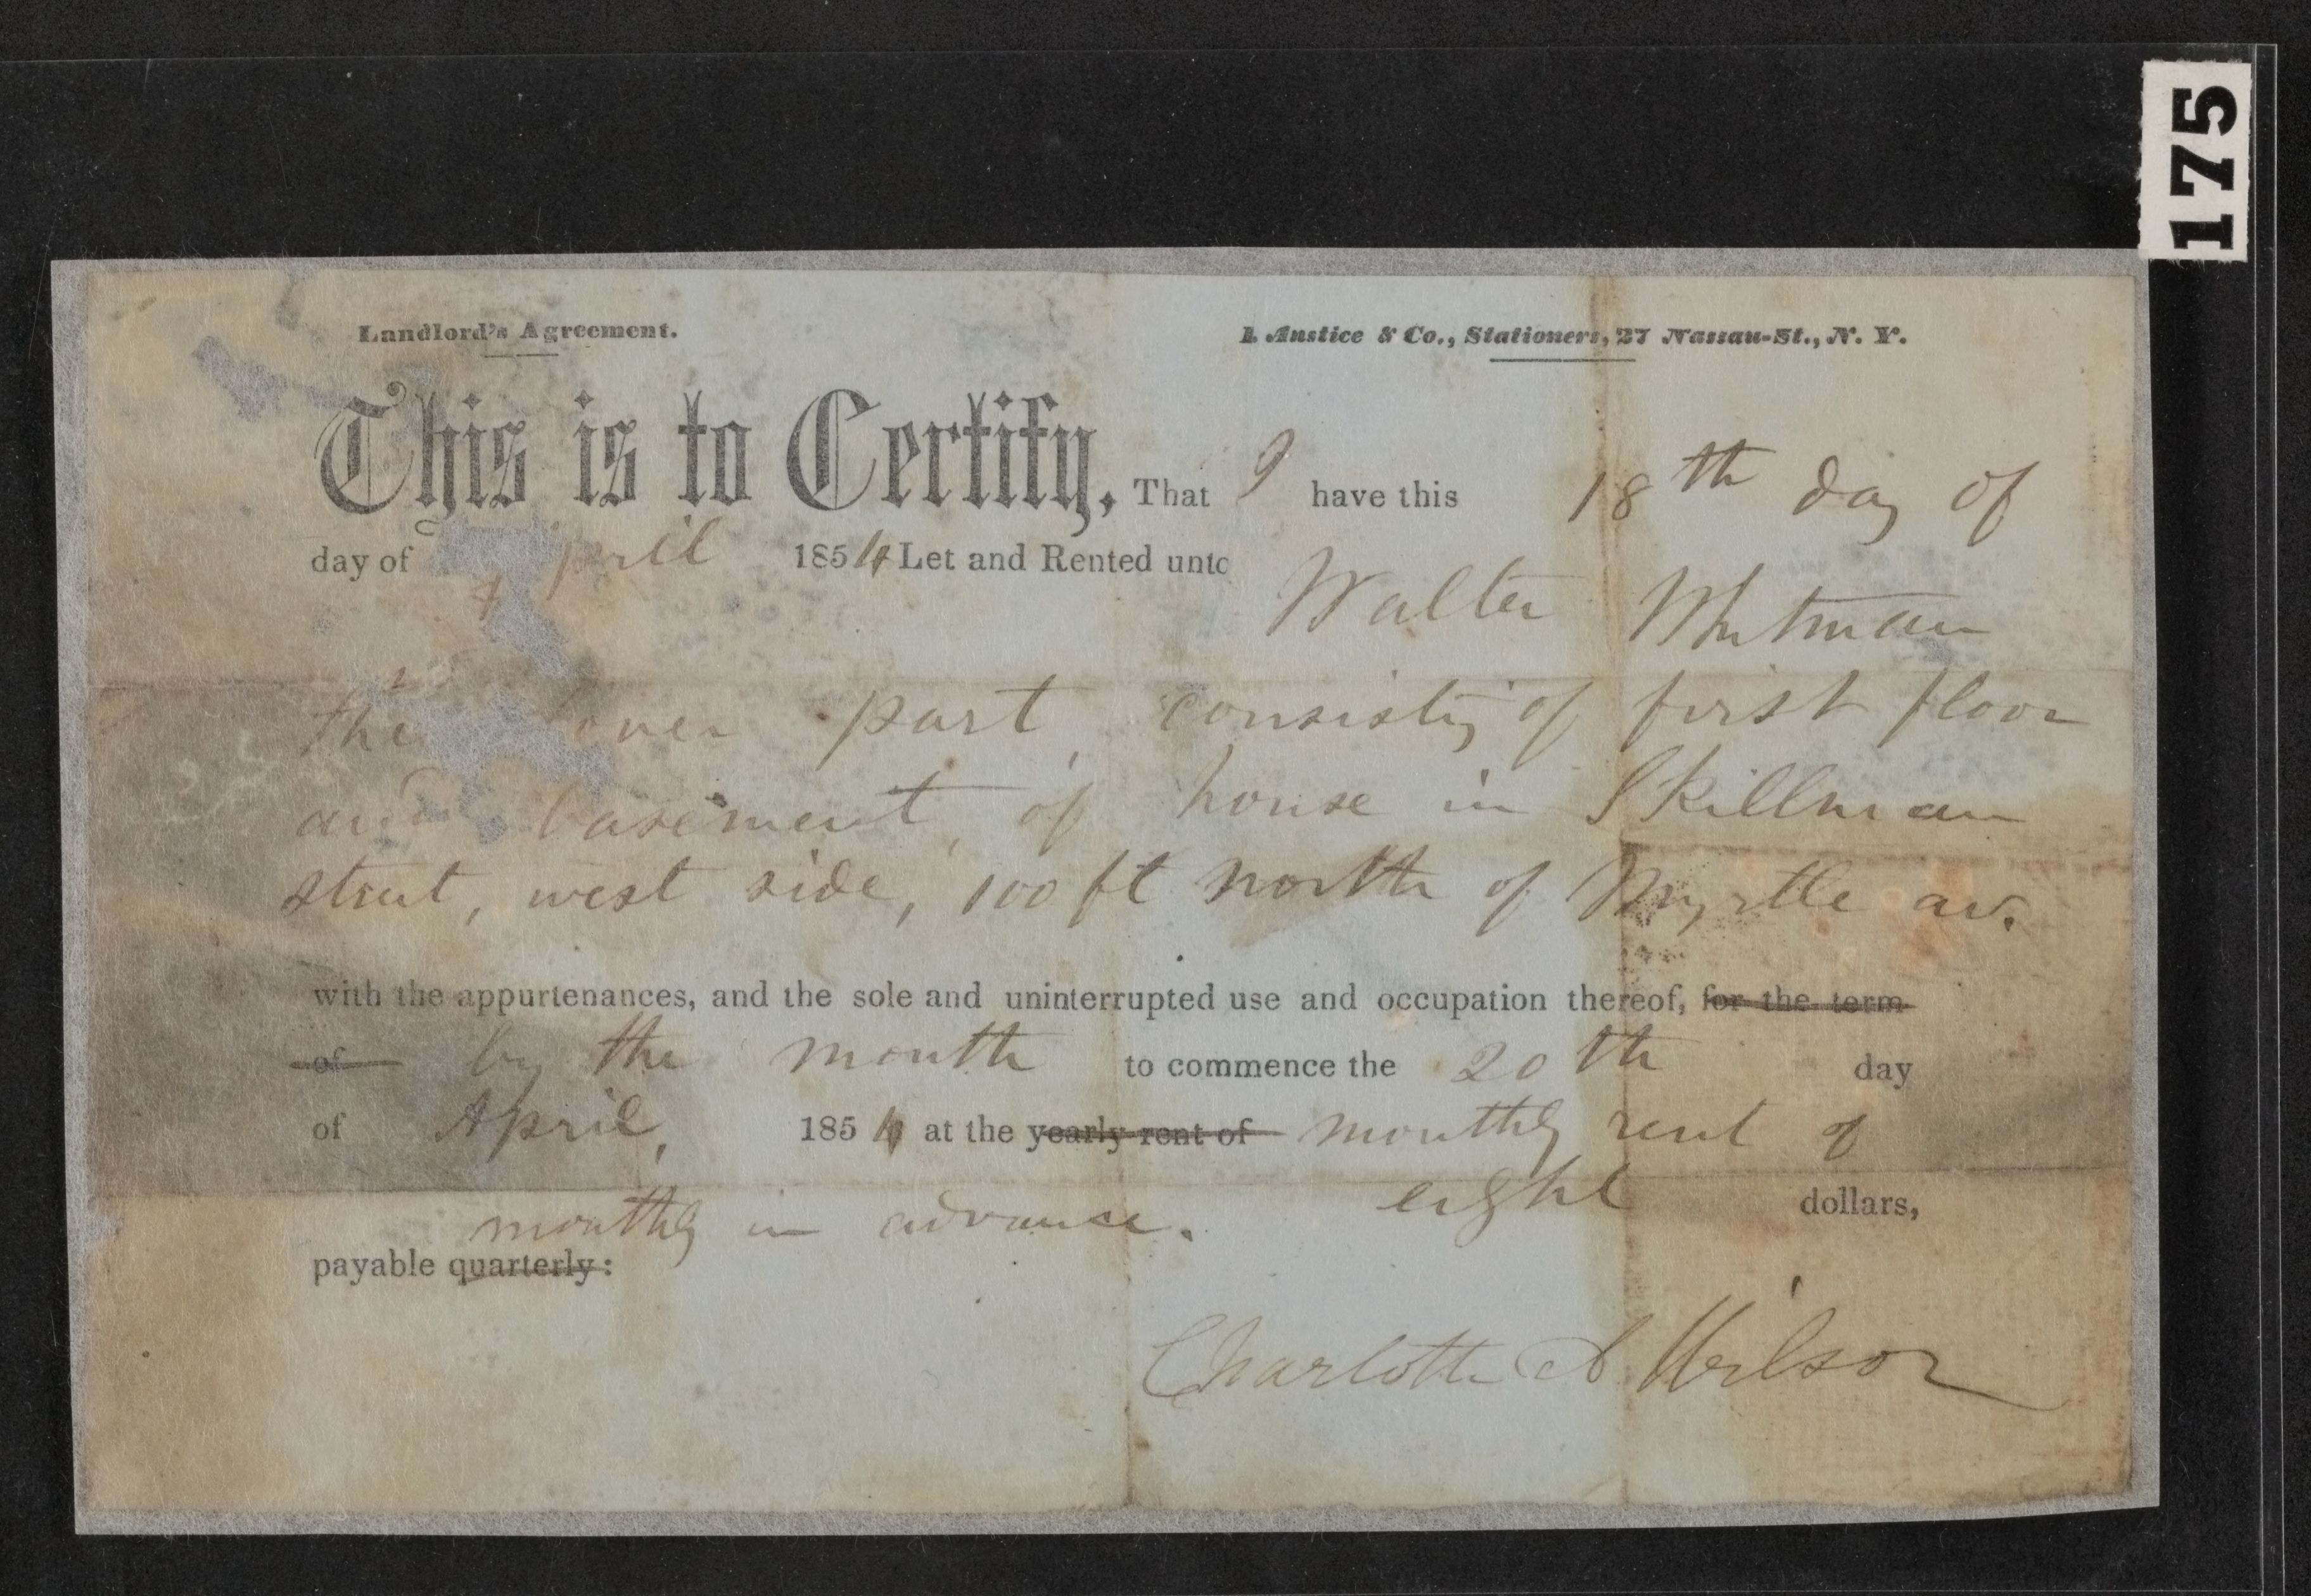 175
Landlord's Agreement.
I. Anstice & Co., Stationers, 27 Nassau-St., N. Y.
This is to Certify, That I have this 18th day of
day of April 1854 Let and Rented unto
Walter Whitman
the lower part, consisting of first floor
and basement, of house in Skillman
street, west side, 100 ft north of Myrtle av.
with the appurtenances, and the sole and uninterrupted use and occupation thereof, for the term
of by the month to commence the 20th day
of April, 1854 at the yearly rent of monthly rent of
eight dollars,
monthly in advance.
payable quarterly:
Charlotte A Wilson